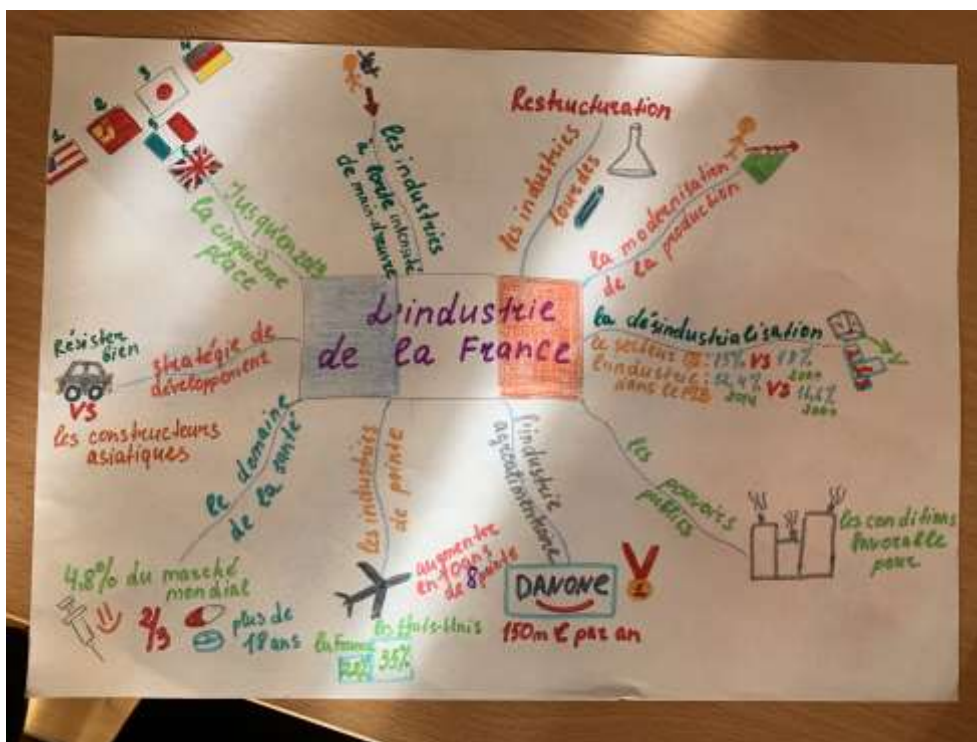 L'industrie
de la France
1
2
3
4
5
Jusqu'en
la cinquième
place
les industries
à forte intensité
de main-d'œuvre
Restructuration
les industries
lourdes
la modernisation
de la production
la désindustrialisation
le secteur
l'industrie
dans le PIB
VS
VS
les pouvoirs
publics
les conditions
favorable
pour
l'industrie
agroalimentaire
DANONE
1
150m € par an
les industries
de pointe
augmenter
en 10 ans
de 8 points
les États-Unis
la France
35%
le domaine
de la santé
4.8% du marché
mondial
2/3
plus de
18 ans
stratégie de
développement
Résister
bien
VS
les constructeurs
asiatiques